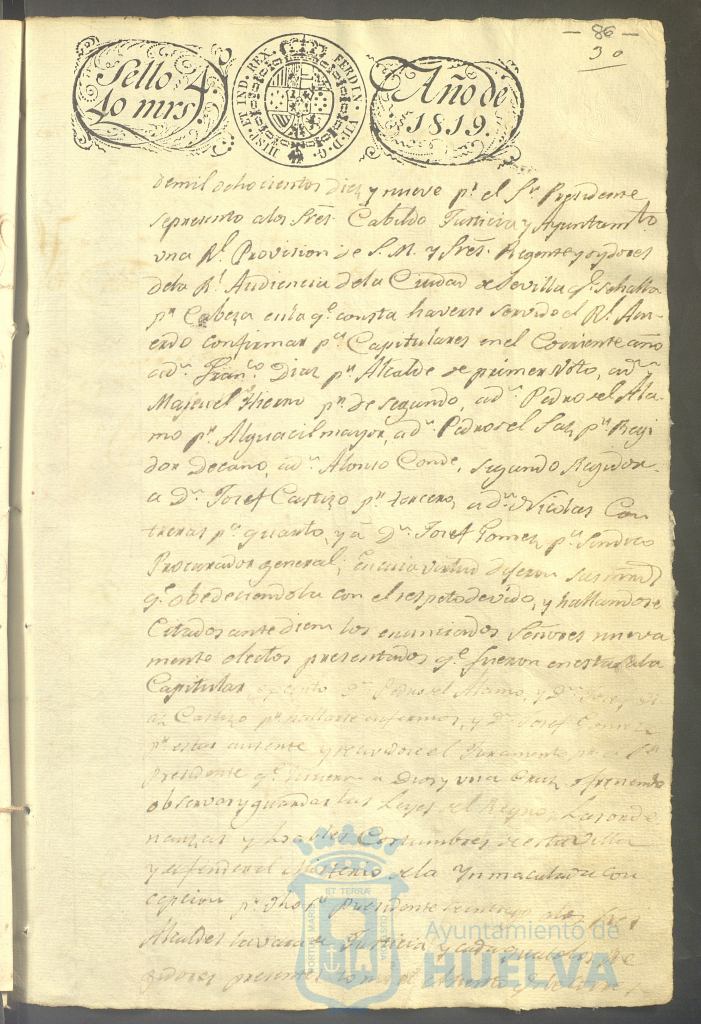 - 86 -
3º
Sello 4º
40 mrs.
HISP. ET IND. REX. FERDIN. VII. D. G.
Año de
1819.
demil ochocientos diez y nueve pr. el Sr. Presidente
sepresento alos Sres. Cabildo Justicia y Ayuntamto
una Rl. Provision de S. M. y Sres. Regente y oydores
dela Rl. Audiencia dela Ciudad de Sevilla qe. sehalla
pr. Cabeza enla qe. consta haverse servido el Rl. Acu-
erdo confirmar pa. Capitulares en el Corriente año
a Dn. Franco. Diaz pr. Alcalde de primer Voto, a Dn.
Manuel Hierro pr. de segundo, a Dn. Pedro del Ala-
mo pr. Alguacil mayor, a Dn. Pedro del Saz pr. Regi-
dor Decano, a Dn. Alonso Conde, segundo Regidor
a Dn. Josef Castizo pr. tercero, a Dn. Nicolas Con
treras pr. quarto, y a Dn. Josef Gomez pr. Sindico
Procurador general; En cuia virtud dijeron sus mrds
qe. obedeciendola con el respeto devido, y hallandose
Citados ante diem los enunciados Señores nueva
mente electos presentados qe. fueron en esta Sala
Capitular, excepto Dn. Pedro del Alamo, y Dn. Jose
Castizo pr. hallarse enfermos, y Dn. Josef Gomez
pr. estar ausente y recividose el Juramento pr. el Sr.
Presidente qe. hicieron a Dios y una Cruz ofreciendo
observar y guardar las Leyes del Reyno, las orde
nanzas y loables Costumbres de esta Villa
y defender el Misterio de la Ynmaculada Con
cepcion pr. dho Sr. Presidente se entrego alos Sres
Alcaldes la vara de Justicia y cada qual delos Re
gidores presentes tomo el asiento
PORTUS MARIS ET TERRAE CUSTODIA
Ayuntamiento de
HUELVA